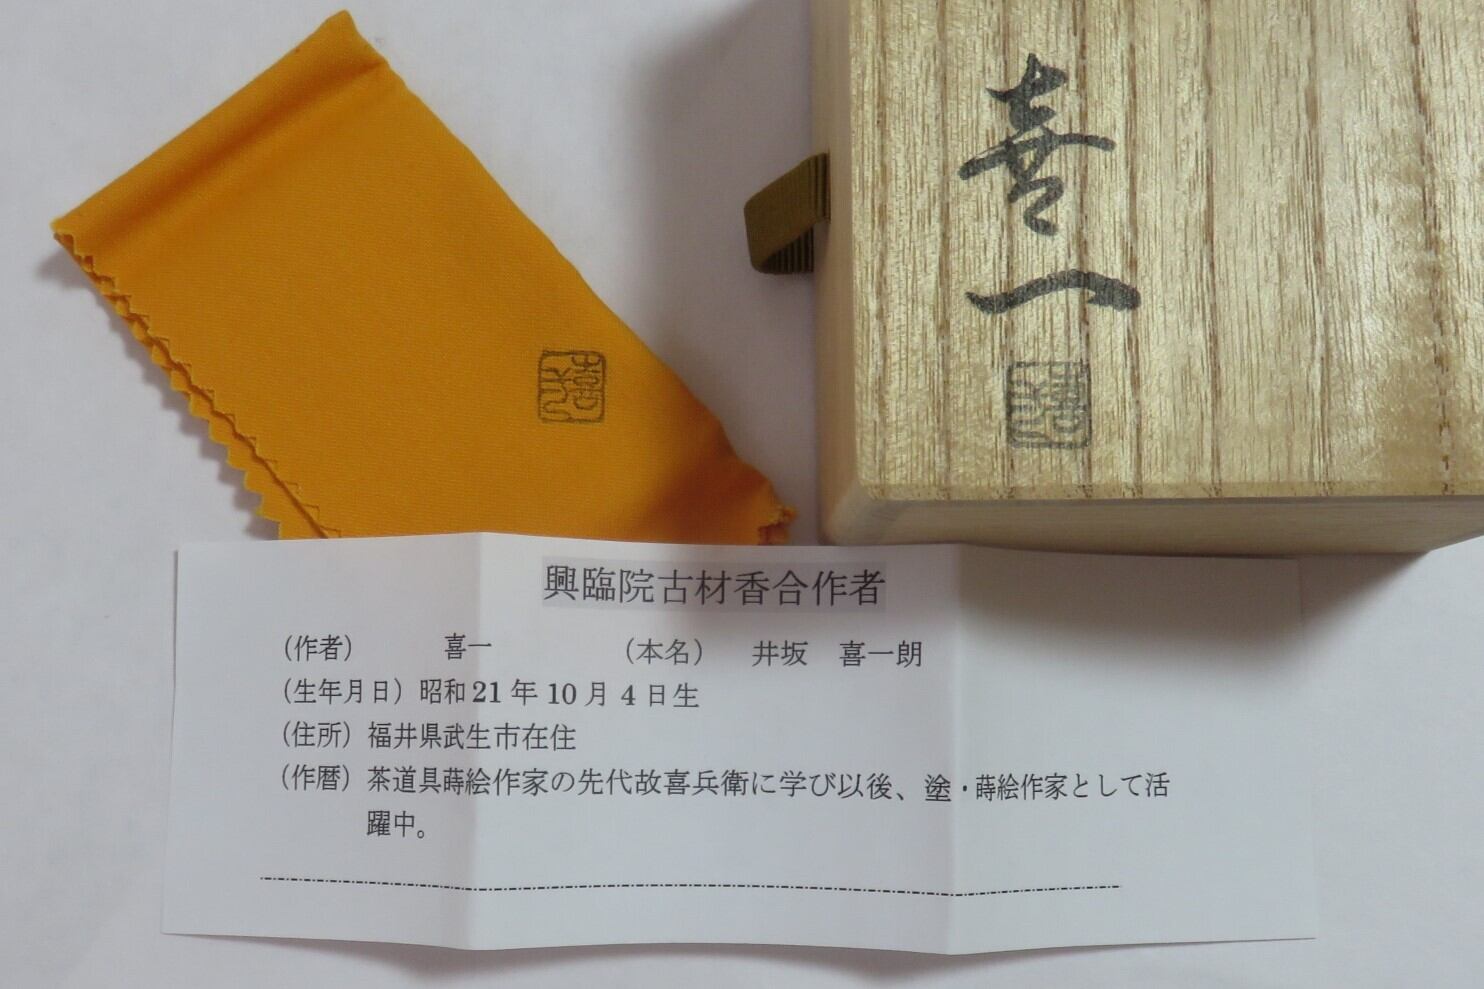 喜一
興臨院古材香合作者
（作者）　喜一　（本名）　井坂　喜一朗
（生年月日）昭和21年10月4日生
（住所）福井県武生市在住
（作暦）茶道具蒔絵作家の先代故喜兵衛に学び以後、塗・蒔絵作家として活
躍中。